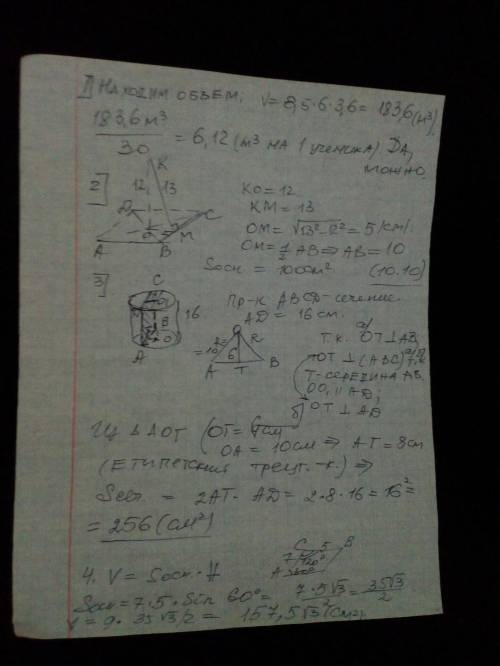 1) Находим объем. V = 8,5·6·3,6 = 183,6 (м³)
183,6 м³
30
= 6,12 (м³ на 1 ученика) Да,
можно.
K
2]
12 13
D C
O M
A B
KO = 12
KM = 13
OM = √13²-12² = 5 (см).
OM = ½ AB ⇒ AB = 10
Sосн = 100 см² (10.10)
3]
C
16
B
O
A
Пр-к ABCD - сечение.
AD = 16 см.
O
R
=10
6
A T B
Т.к. OT ⊥ AB,
то OT ⊥ (ABC)
T - середина AB.
OO₁ || AD;
б) OT ⊥ AD
Из Δ AOT (OT = 6 см
OA = 10 см ⇒ AT = 8 см
(Египетский треуг-к.) ⇒
Sсеч. = 2AT · AD = 2·8·16 = 16² =
= 256 (см²)
C 5 B
7 120°
A 60°
4. V = Sосн · H
Sосн = 7·5·sin 60° = 7·5√3/2 = 35√3/2
V = 9·35√3/2 = 157,5√3 (см³)